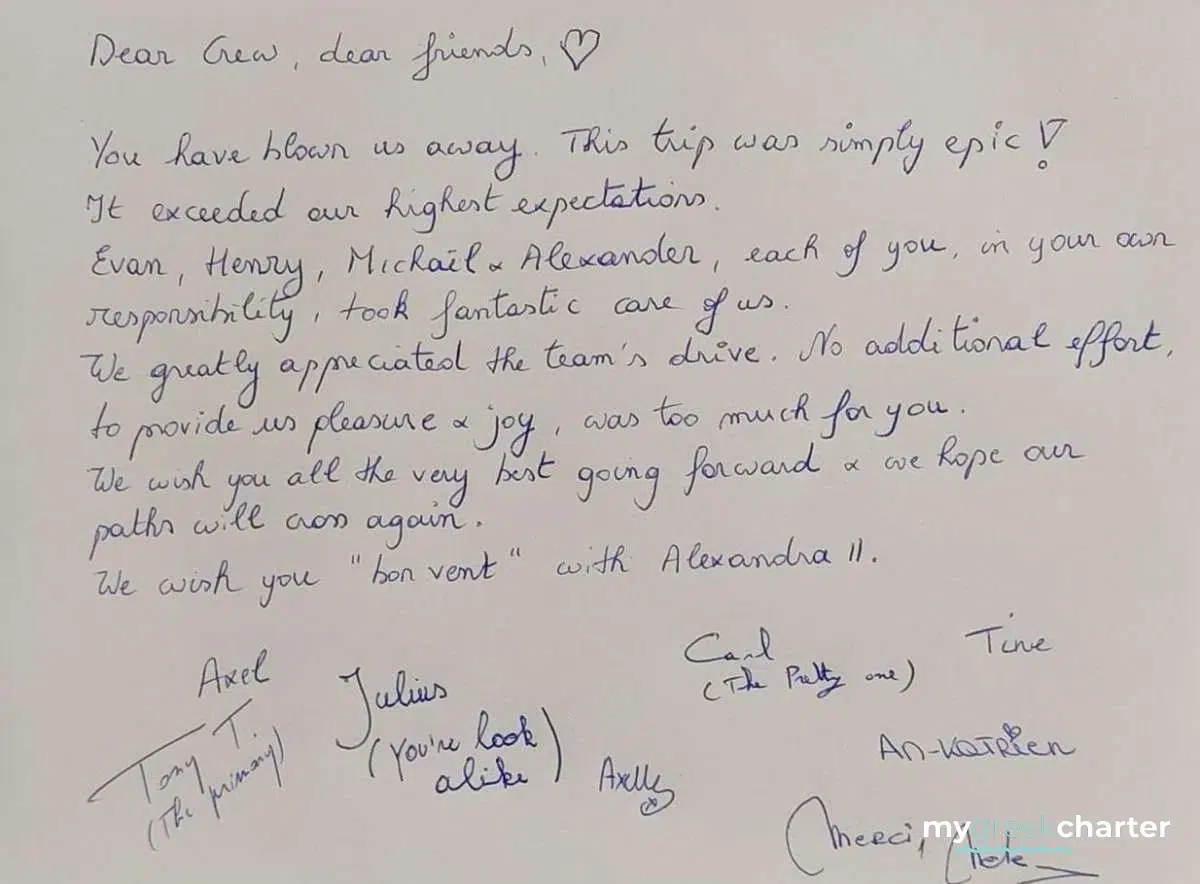 Dear Crew, dear friends, ♡
You have blown us away. This trip was simply epic !
It exceeded our highest expectations.
Evan, Henry, Michaël & Alexander, each of you, in your own
responsibility, took fantastic care of us.
We greatly appreciated the team's drive. No additional effort,
to provide us pleasure & joy, was too much for you.
We wish you all the very best going forward & we hope our
paths will cross again.
We wish you "bon vent" with Alexandra II.
Axel
Julius
(You're look
alike)
Carl
(The Pretty one)
Tine
Tony T.
(The primary)
Axelle
An-Katrien
Merci,
mygreekcharter